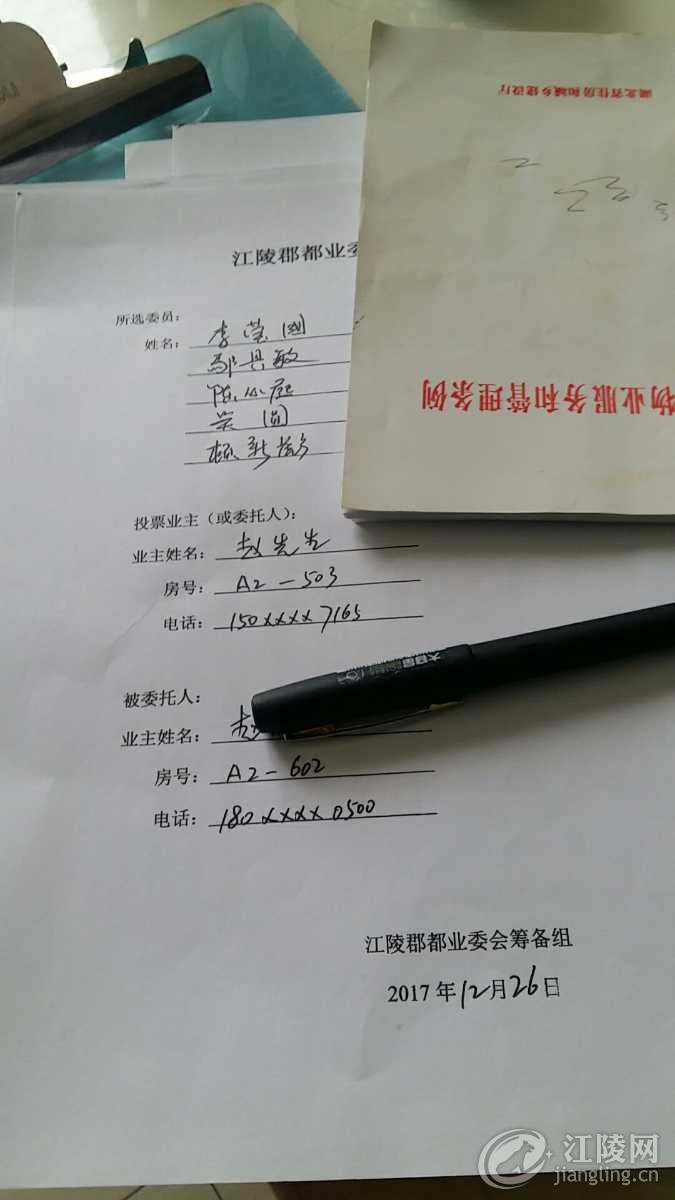 湖北省住房和城乡建设厅
物业服务和管理条例
江陵郡都业委
所选委员：
姓名：李莹国
鄢具敏
陈从庭
吴圆
投票业主（或委托人）：
业主姓名：赵先生
房号：A2-503
电话：150xxxx7165
被委托人：
业主姓名：赵
房号：A2-602
电话：180xxxx0500
江陵郡都业委会筹备组
2017年12月26日
江陵网
jiangling.cn